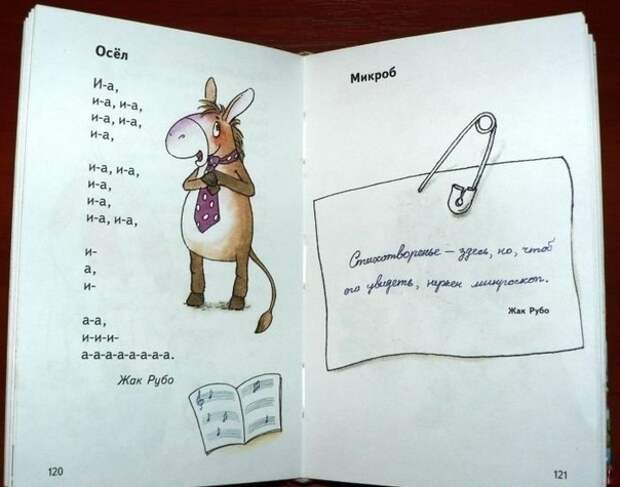 Осёл
И-а,
и-а, и-а,
и-а, и-а,
и-а,
и-а, и-а,
и-а,
и-а,
и-а, и-а,
и-
а,
и-
а-а,
и-и-и-
а-а-а-а-а-а-а-а.
Жак Рубо
120
Микроб
Стихотворенье – здесь, но, чтоб
его увидеть, нужен микроскоп.
Жак Рубо
121